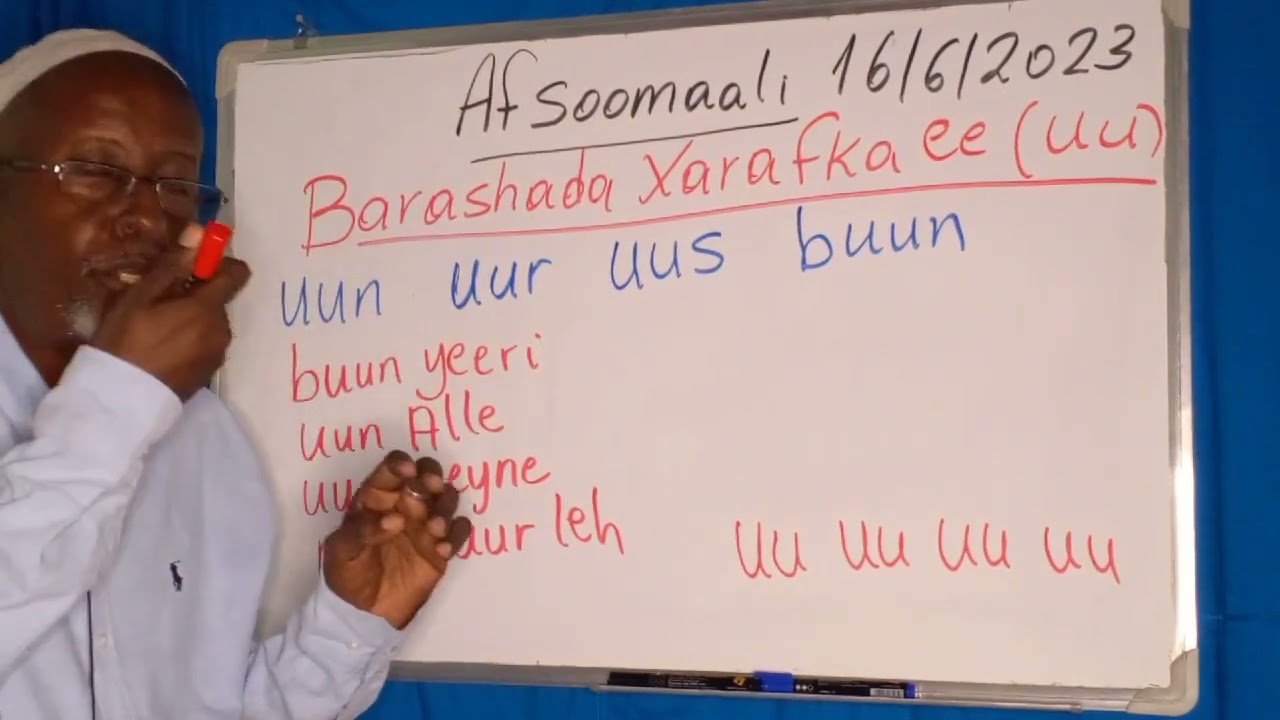 Af Soomaali 16/6/2023
Barashada Xarafka ee (uu)
uun uur uus buun
buun yeeri
uun Alle
leh
uu uu uu uu